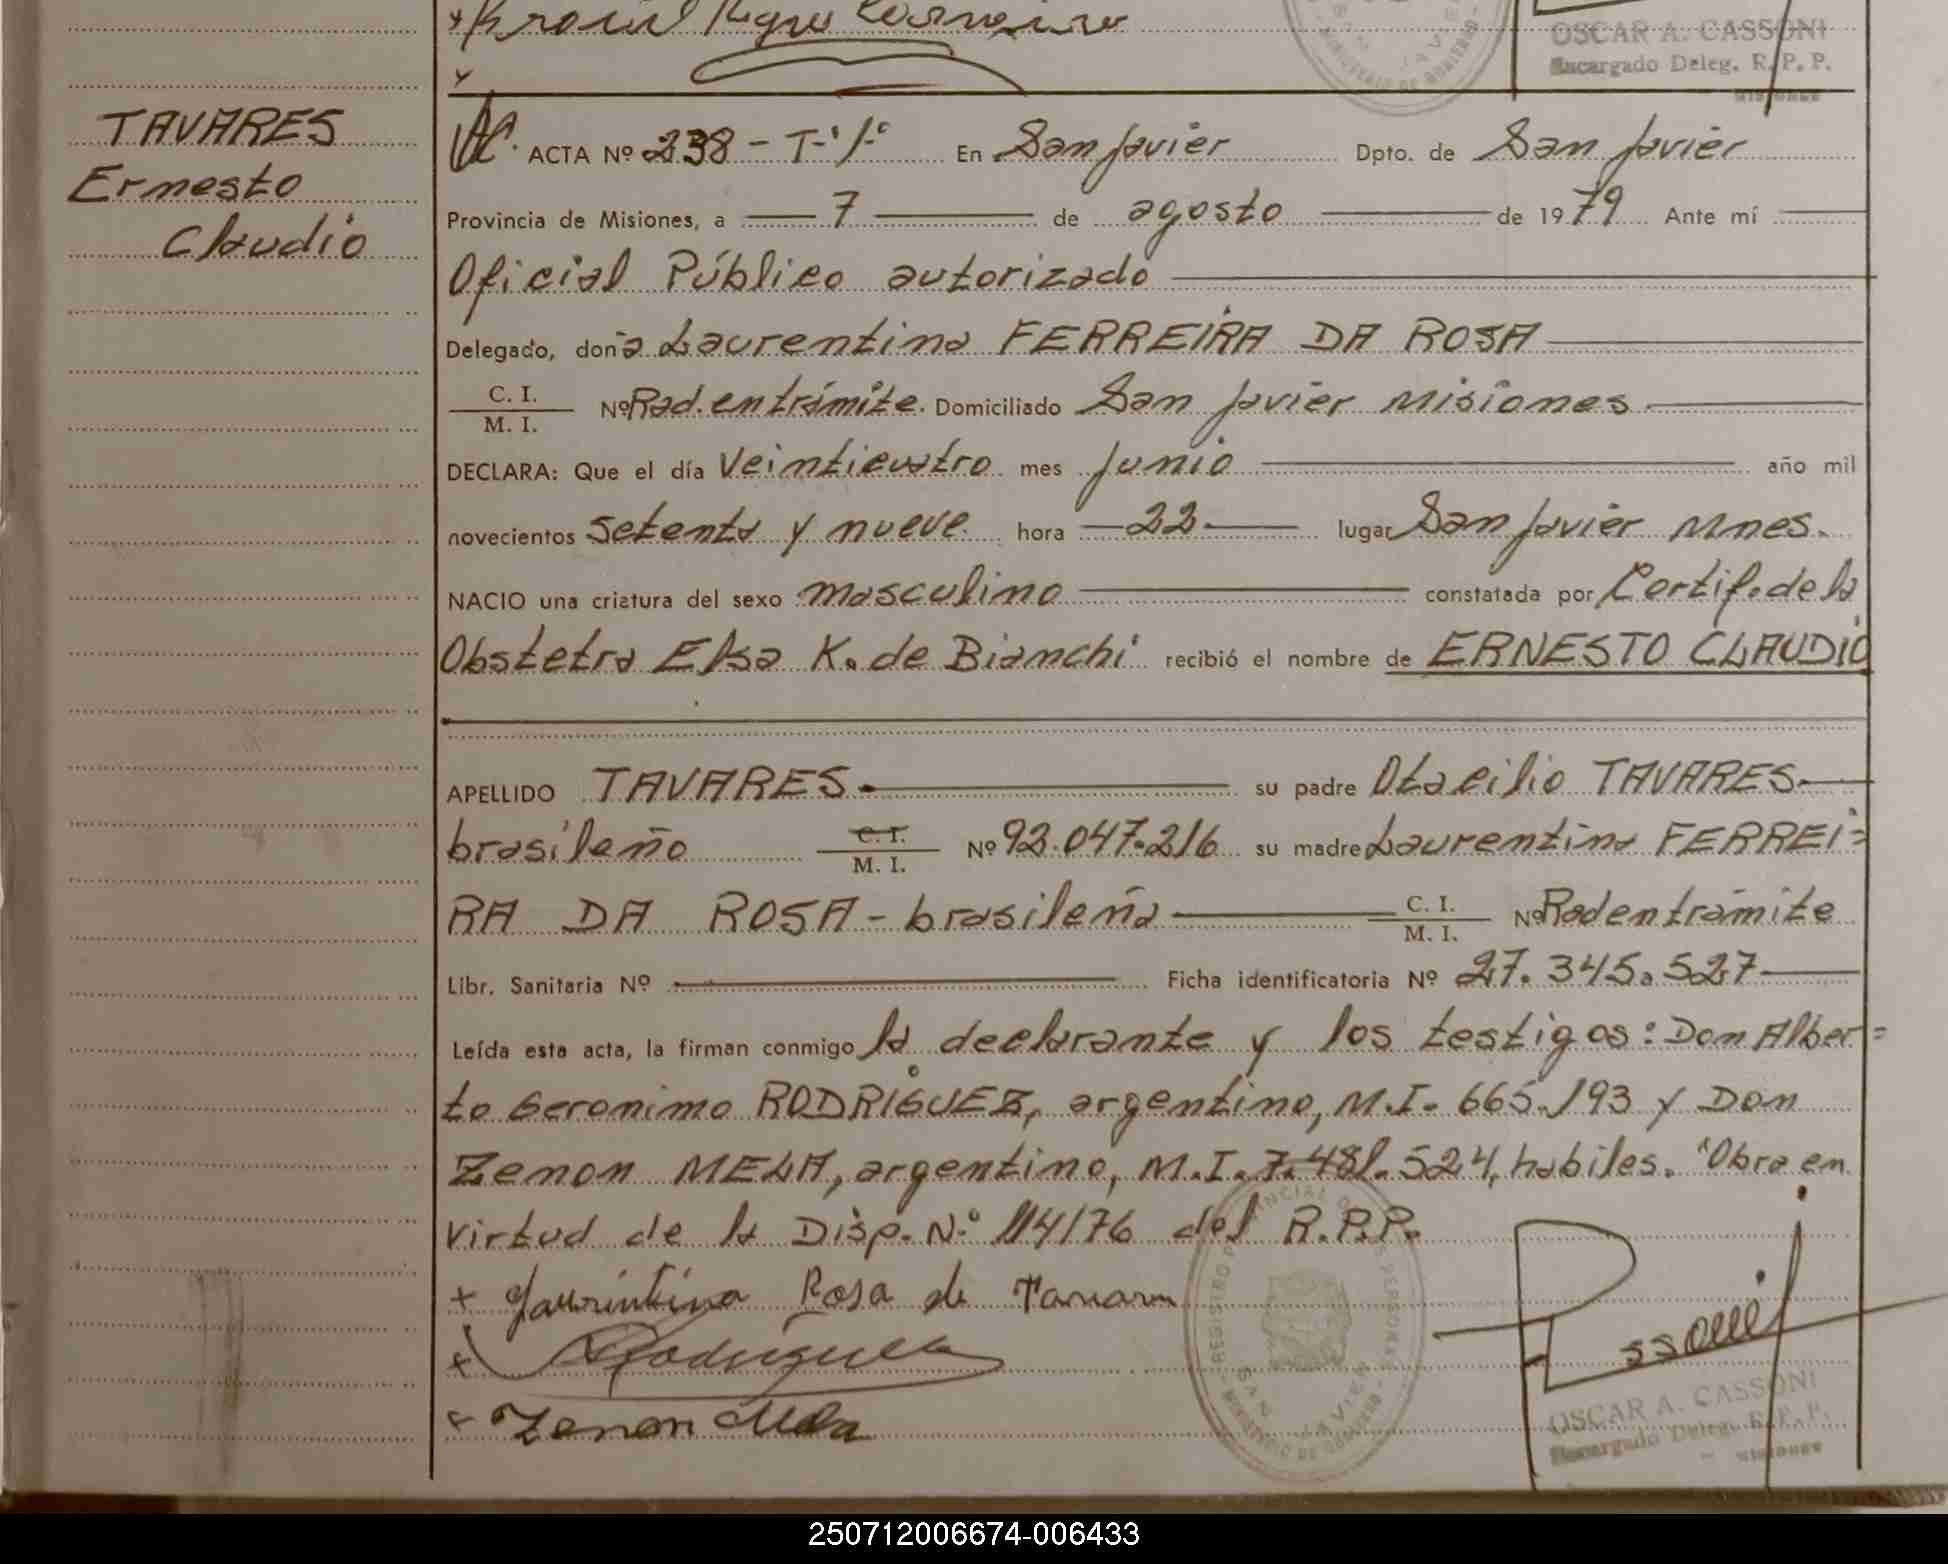 OSCAR A. CASSONI
Encargado Deleg. R.P.P.
MISIONES
TAVARES
Ernesto
Claudio
ACTA Nº 238 - T-1º En San Javier Dpto. de San Javier
Provincia de Misiones, a 7 de agosto de 1979 Ante mí
Oficial Público autorizado
Delegado, doña Laurentina FERREIRA DA ROSA
C. I.
M. I. Nº Rad. en trámite. Domiciliado San Javier Misiones
DECLARA: Que el día Veinticuatro mes Junio año mil
novecientos setenta y nueve hora 22 lugar San Javier Mnes.
NACIO una criatura del sexo masculino constatada por Certif. de la
Obstetra Elsa K. de Bianchi recibió el nombre de ERNESTO CLAUDIO
APELLIDO TAVARES su padre Otacilio TAVARES
brasileño C. I. M. I. Nº 92.047.216 su madre Laurentina FERREI=
RA DA ROSA - brasileña C. I. M. I. Nº Rad en trámite
Libr. Sanitaria Nº Ficha identificatoria Nº 27.345.527
Leída esta acta, la firman conmigo la declarante y los testigos: Don Alber=
to Geronimo RODRIGUEZ, argentino, M.I. 665.193 y Don
Zenon MELA, argentino, M.I. 7.481.524, habiles. "Obra en
virtud de la Disp. Nº 114/76 del R.P.P.
+ Laurintina Rosa de Tavares
+ Rodriguez
Zenon Mela
REGISTRO PROVINCIAL DE LAS PERSONAS
SAN JAVIER
MINISTERIO DE GOBIERNO
OSCAR A. CASSONI
Encargado Deleg. R.P.P.
MISIONES
250712006674-006433